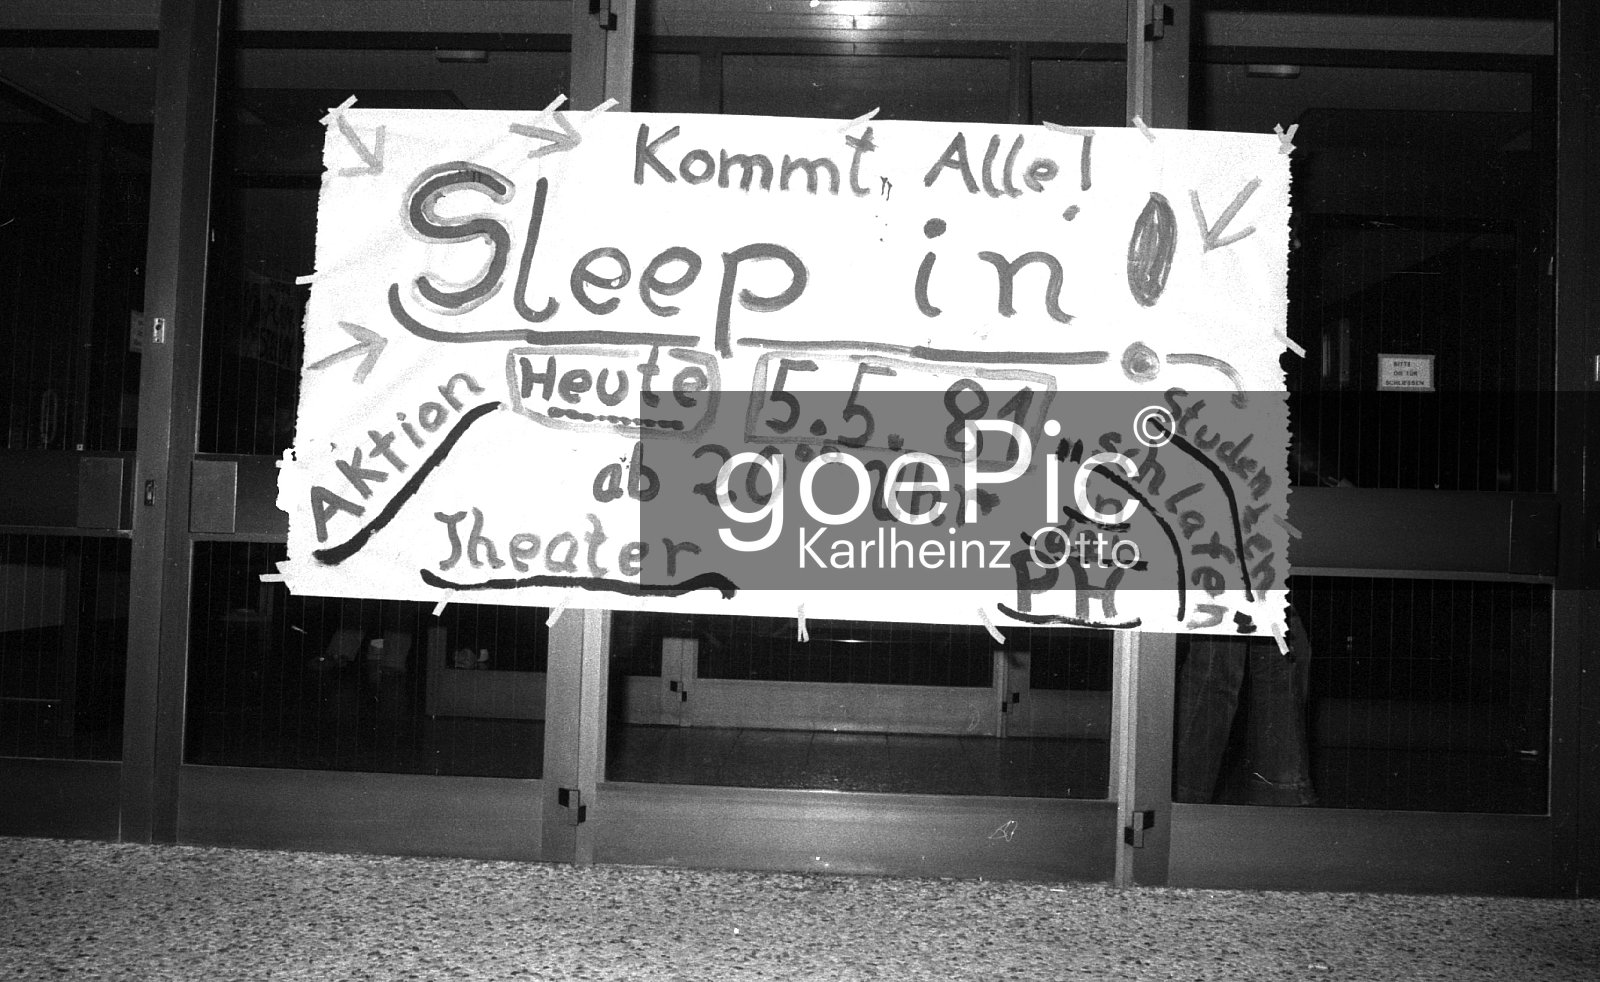 Kommt Alle!
Sleep in!
Heute 5.5.81
ab 20⁰⁰ Uhr
Aktion
Theater
Studenten
"schlafen"
in
der
PH
BITTE
DIE TÜR
SCHLIESSEN
© goePic
Karlheinz Otto